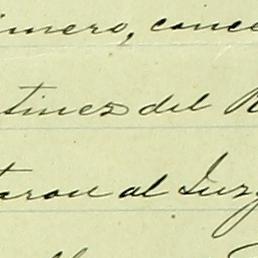 imero, conce
tinez del R
taron al Juzg